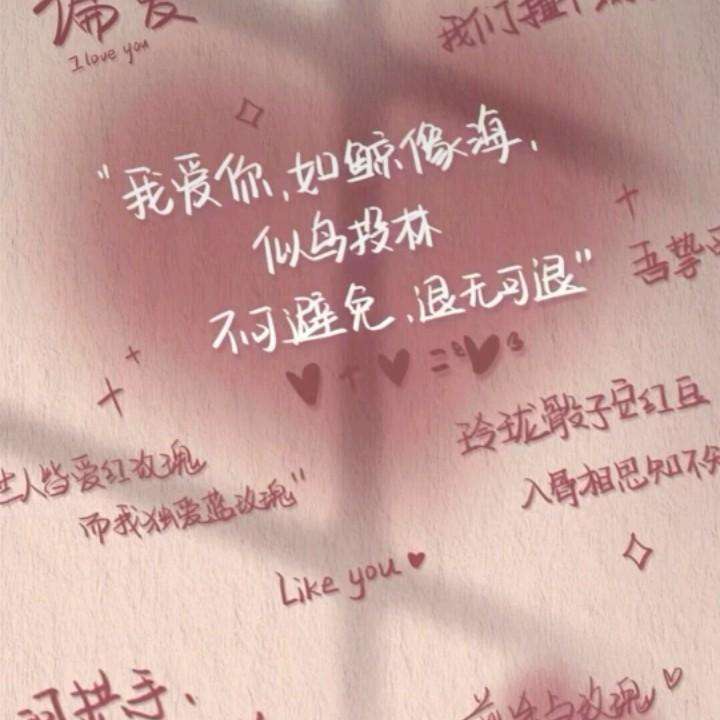 偏爱
I love you
我们
"我爱你,如鲸像海,
似鸟投林
不可避免,退无可退"
吾挚
玲珑骰子安红豆
入骨相思知不
世人皆爱红玫瑰
而我独爱蓝玫瑰"
Like you
拱手,
与玫瑰